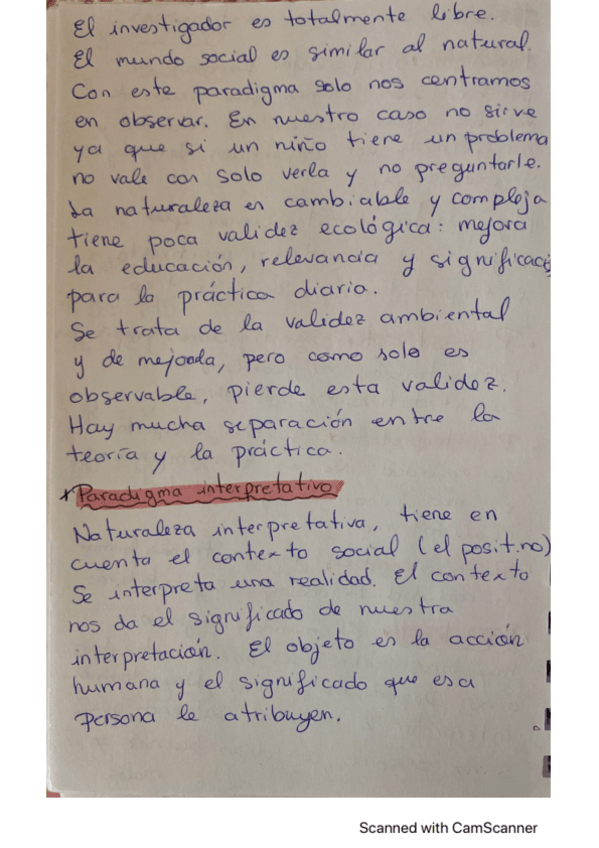 El investigador es totalmente libre.
El mundo social es similar al natural.
Con este paradigma solo nos centramos
en observar. En nuestro caso no sirve
ya que si un niño tiene un problema
no vale con solo verla y no preguntarle.
La naturaleza es cambiable y compleja
tiene poca validez ecológica: mejora
la educación, relevancia y significació
para la práctica diaria.
Se trata de la validez ambiental
y de mejoada, pero como solo es
observable, pierde esta validez.
Hay mucha separación entre la
teoría y la práctica.
*Paradigma interpretativo
Naturaleza interpretativa, tiene en
cuenta el contexto social (el posit.no)
Se interpreta una realidad. El contexto
nos da el significado de nuestra
interpretación. El objeto es la acción
humana y el significado que esa
persona le atribuyen.
Scanned with CamScanner